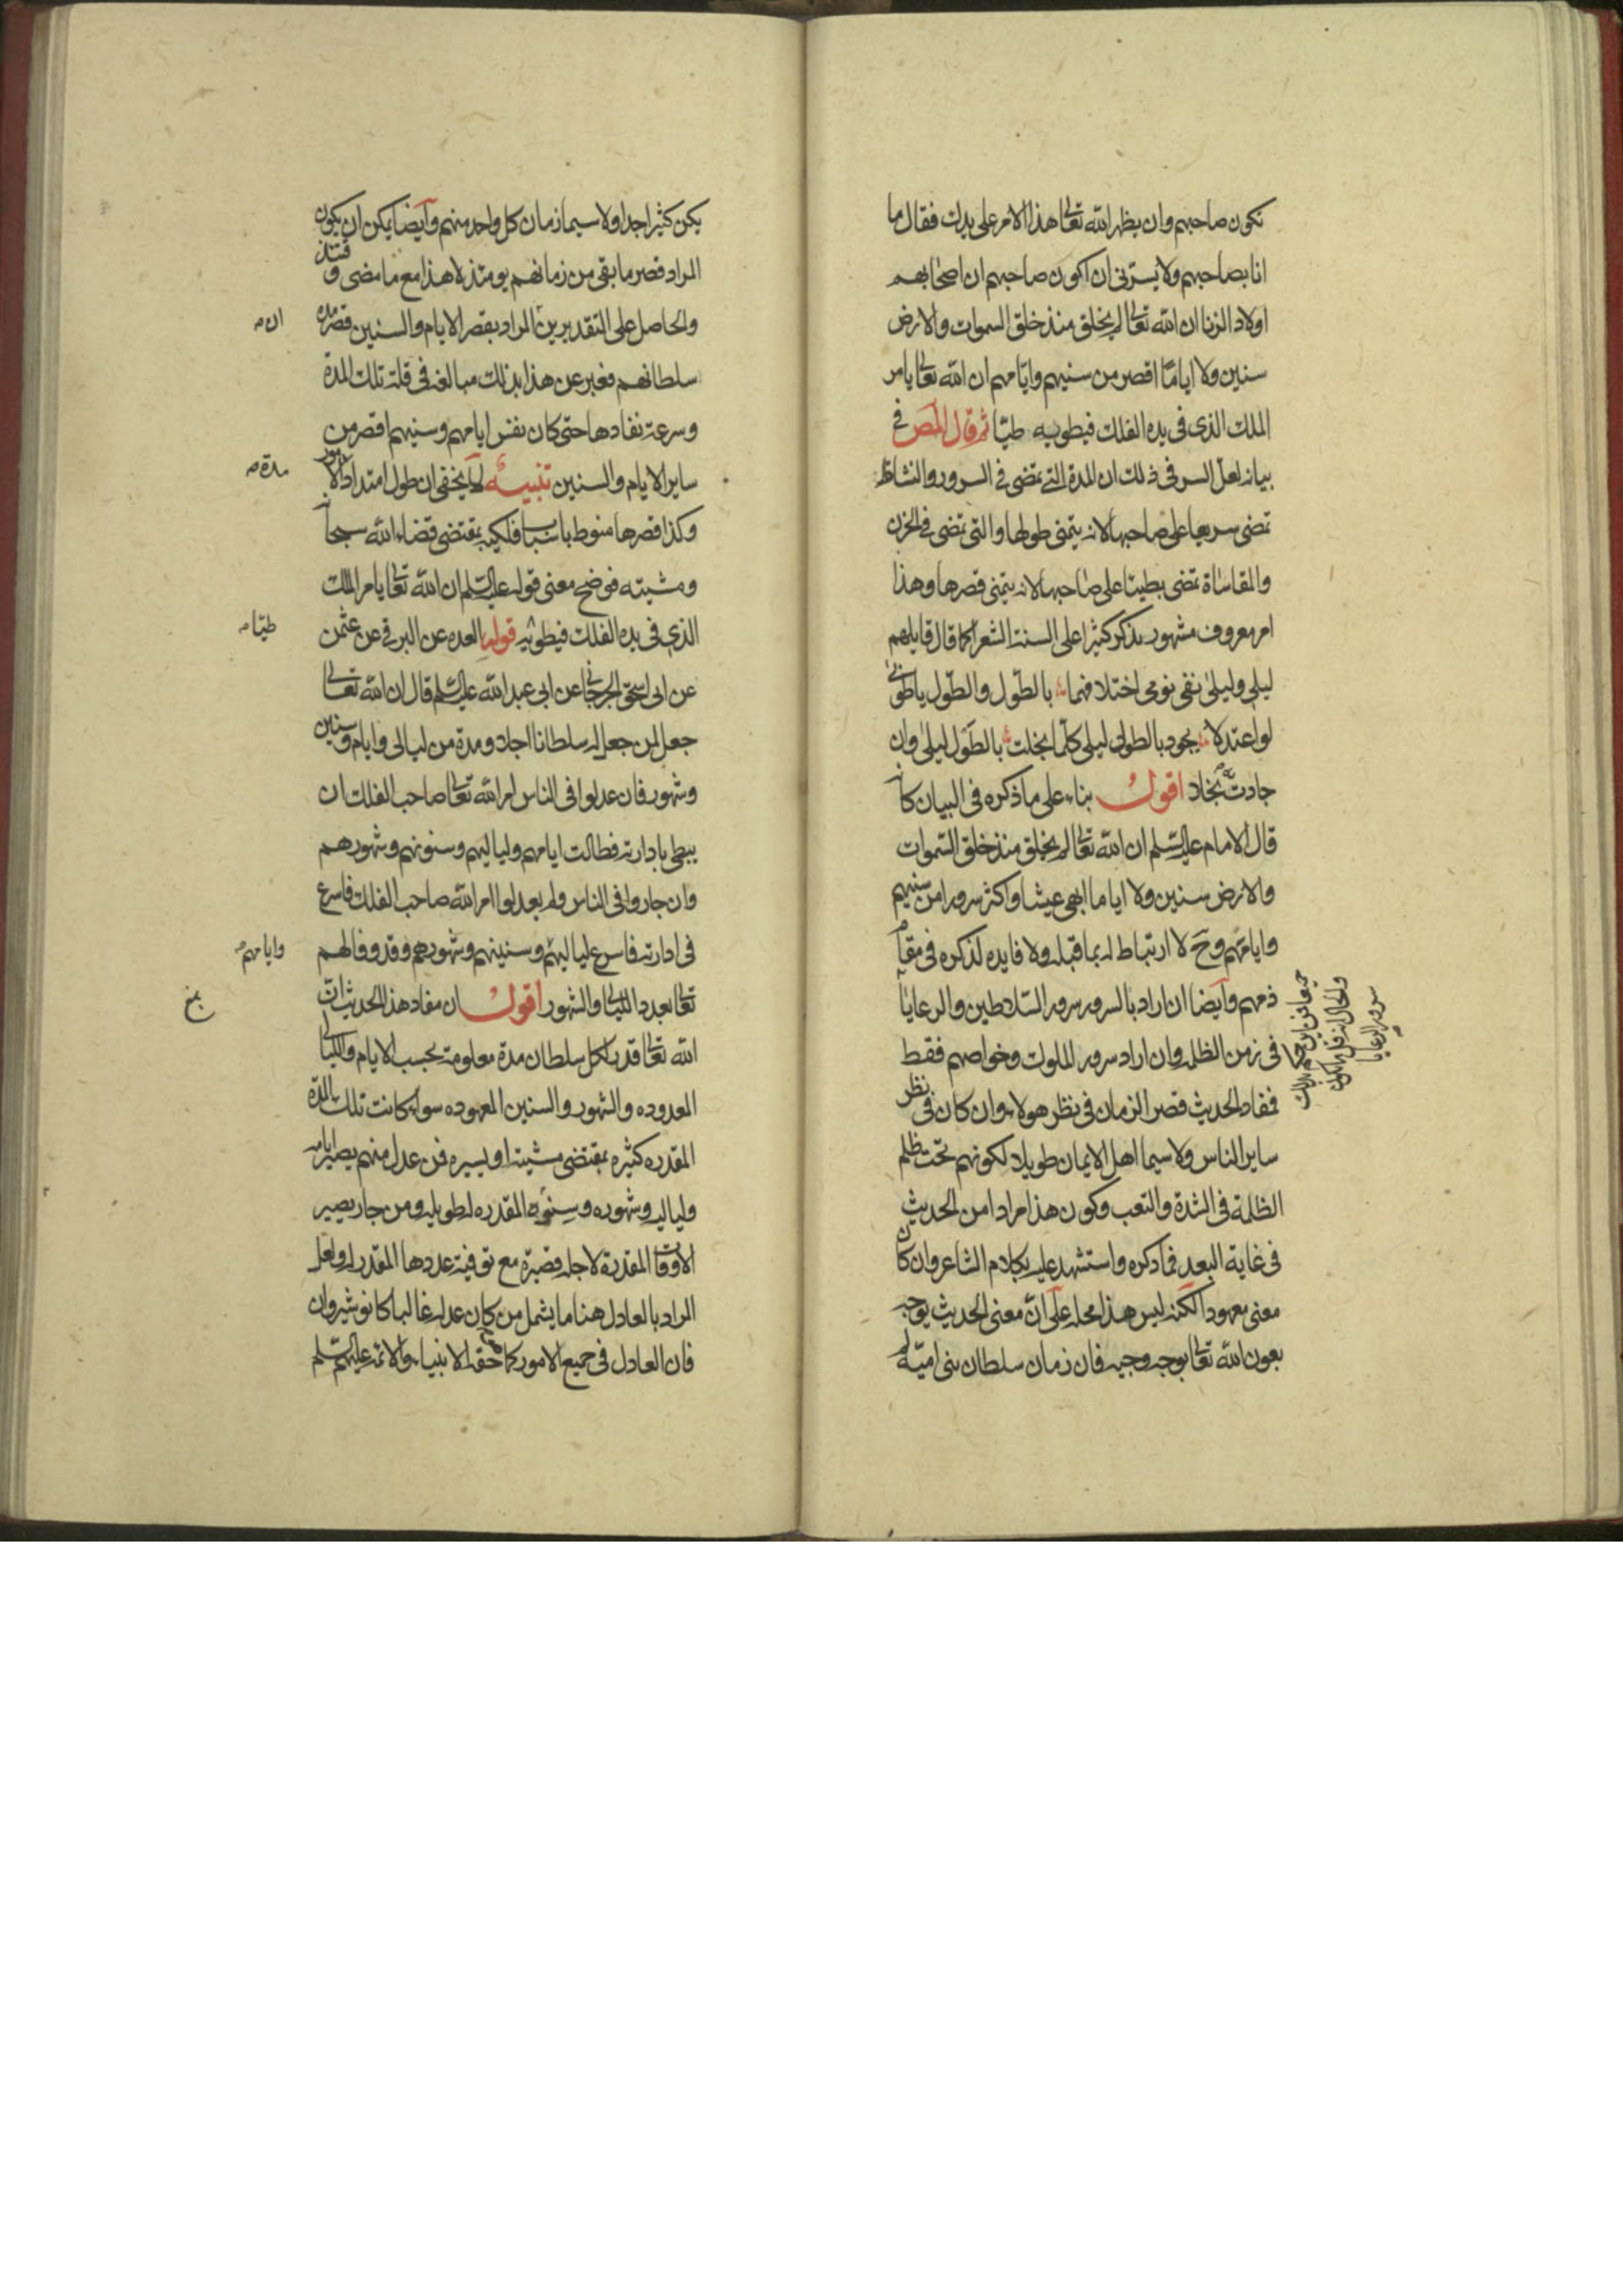 تكون صاحبهم وان يظهر الله تعالى هذا الامر على يدك فقال ما
انا بصاحبهم ولا يسرني ان اكون صاحبهم ان اصحابهم
اولاد الزنا ان الله تعالى لم يخلق منذ خلق السموات والارض
سنين ولا اياما اقصر من سنيهم وايامهم ان الله تعالى يامر
الملك الذي في يده الفلك فيطويه طيّا ثم قال المص في
بيانه لعل السر في ذلك ان المدة التي تمضى في السرور والنشاط
تمضى سريعا على صاحبها لانه يتمنى طولها والتي تمضى في الحزن
والمقاساة تمضى بطيئا على صاحبها لانه يتمنى قصرها وهذا
امر معروف مشهور يذكر كثيرا على السنة الشعرا كما قال قايلهم
ليلى وليلى نفى نومى اختلافهما بالطول والطول ياطوبى
لو اعتدلا يجود بالطول ليلى كلما بخلت بالطول ليلى وان
جادت به بخلا اقول بناء على ما ذكره في البيان كانه
قال الامام عليه السلم ان الله تعالى لم يخلق منذ خلق السموات
والارض سنين ولا اياما ابهى عيشا واكثر سرورا من سنيهم
وايامهم وح لا ارتباط له بما قبله ولا فايده لذكره في مقام
ذمهم وايضا ان اراد بالسرور سرور السلاطين والرعايا
في زمن الظلمه وان اراد سرور الملوك وخواصهم فقط
فمفاد الحديث قصر الزمان في نظر هولاء وان كان في نظر
ساير الناس ولا سيما اهل الايمان طويلا لكونهم تحت ظلم
الظلمة في الشدة والتعب وكون هذا مرادا من الحديث
في غاية البعد فما ذكره واستشهد عليه بكلام الشاعر وان كان
معنى معهودا لكنه ليس هذا محله على انّ معنى الحديث يوجه
بعون الله تعالى بوجه وجيه فان زمان سلطان بنى اميّة لم
جميعا فمن اين حكم بذلك
والحال انه قل ما يكون
سرور الرعايا
يكن كثيرا جدا ولا سيما زمان كل واحد منهم وايضا يمكن ان يكون
المراد قصر ما بقى من زمانهم يومئذ لا هذا مع ما مضى وقتئذ
والحاصل على التقديرين المراد بقصر الايام والسنين قصر مدة
سلطانهم فعبر عن هذا بذلك مبالغه في قلة تلك المدة
وسرعة نفادها حتى كان نفس ايامهم وسنيهم اقصر من
ساير الايام والسنين تنبيه لا يخفى ان طول امتداد الامور
وكذا قصرها منوط باسباب فلكيه بمقتضى قضاء الله سبحانه
ومشيته فوضح معنى قوله عليه السلم ان الله تعالى يامر الملك
الذي في يده الفلك فيطويه قوله العده عن البرقي عن عثمن
عن ابى اسحق الجرجاني عن ابى عبد الله عليه السلم قال ان الله تعالى
جعل لمن جعل له سلطانا اجلا ومدة من ليالى وايام وسنين
وشهور فان عدلوا في الناس امر الله تعالى صاحب الفلك ان
يبطى بادارته فطالت ايامهم ولياليهم وسنونهم وشهورهم
وان جاروا في الناس ولم يعدلوا امر الله صاحب الفلك فاسرع
في ادارته فاسرع لياليهم وسنينهم وشهورهم وقد وفا لهم
تعالى بعدد الليالى والشهور اقول ان مفاد هذا الحديث ان
الله تعالى قدر لكل سلطان مدة معلومة بحسب الايام والليالى
المعدوده والشهور والسنين المعهوده سواء كانت تلك المدّة
المقدره كثيره بمقتضى مشيته او يسيره فمن عدل منهم يصير ايامه
ولياليه وشهوره وسنوه المقدره له طويله ومن جار يصير
الاوقات المقدرة لاجله قصيرة مع توفية عددها المقدر له ولعل
المراد بالعادل هنا ما يشمل من كان عدله غالبا كانوشيروان
فان العادل في جميع الامور كما هو حقه الانبياء والائمه عليهم السلم
ان م
مدة م
طيّا م
وايامهم م